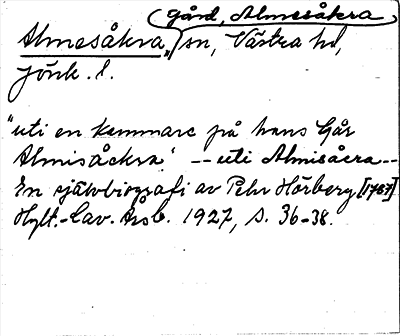 gård, Almesåkra
Almesåkra, sn, Västra hd,
Jönk. l.
"uti en kammare på hans Går
Almisåckra" -- uti Almisåcra --
En självbiografi av Pehr Hörberg [1767]
Hylt.-Cav. Årsb. 1927, s. 36-38.